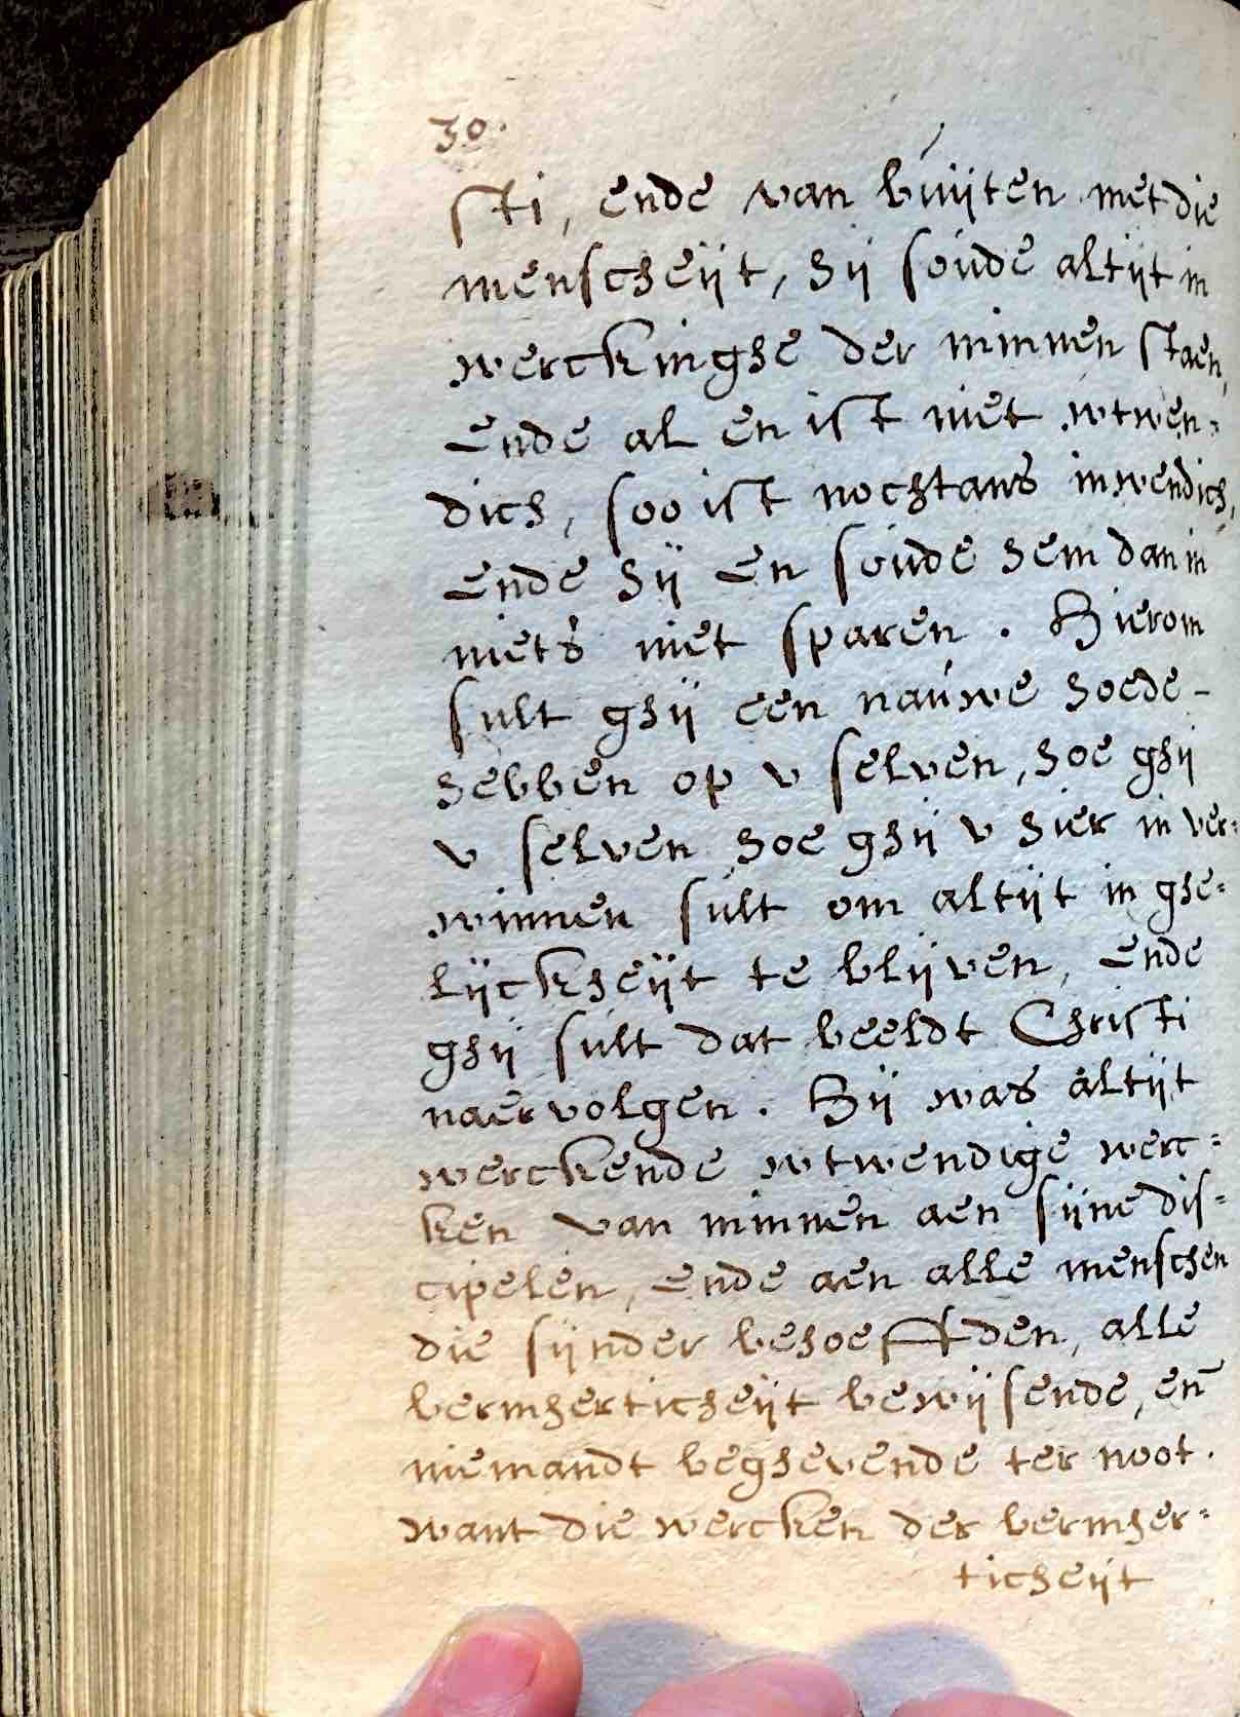 30.
sti, ende van buijten met die
menscheijt, hij soude altijt in
werckinghe der minnen staen,
Ende al en ist niet wtwen=
dich, soo ist nochtans inwendich,
Ende hij en soude hem dan in
niets niet sparen. Hierom
sult ghij een nauwe hoede-
hebben op v selven, hoe ghij
v selven hoe ghij v hier in ver=
winnen sult om altijt in ghe=
lijckheijt te blijven, Ende
ghij sult dat beeldt Christi
naervolgen. Hij was altijt
werckende wtwendige werc=
ken van minnen aen sijne dis=
cipelen, Ende aen alle menschen
die sijnder behoeffden, alle
bermherticheijt bewijsende, en̄
niemandt beghevende ter noot.
want die wercken der bermher=
ticheijt